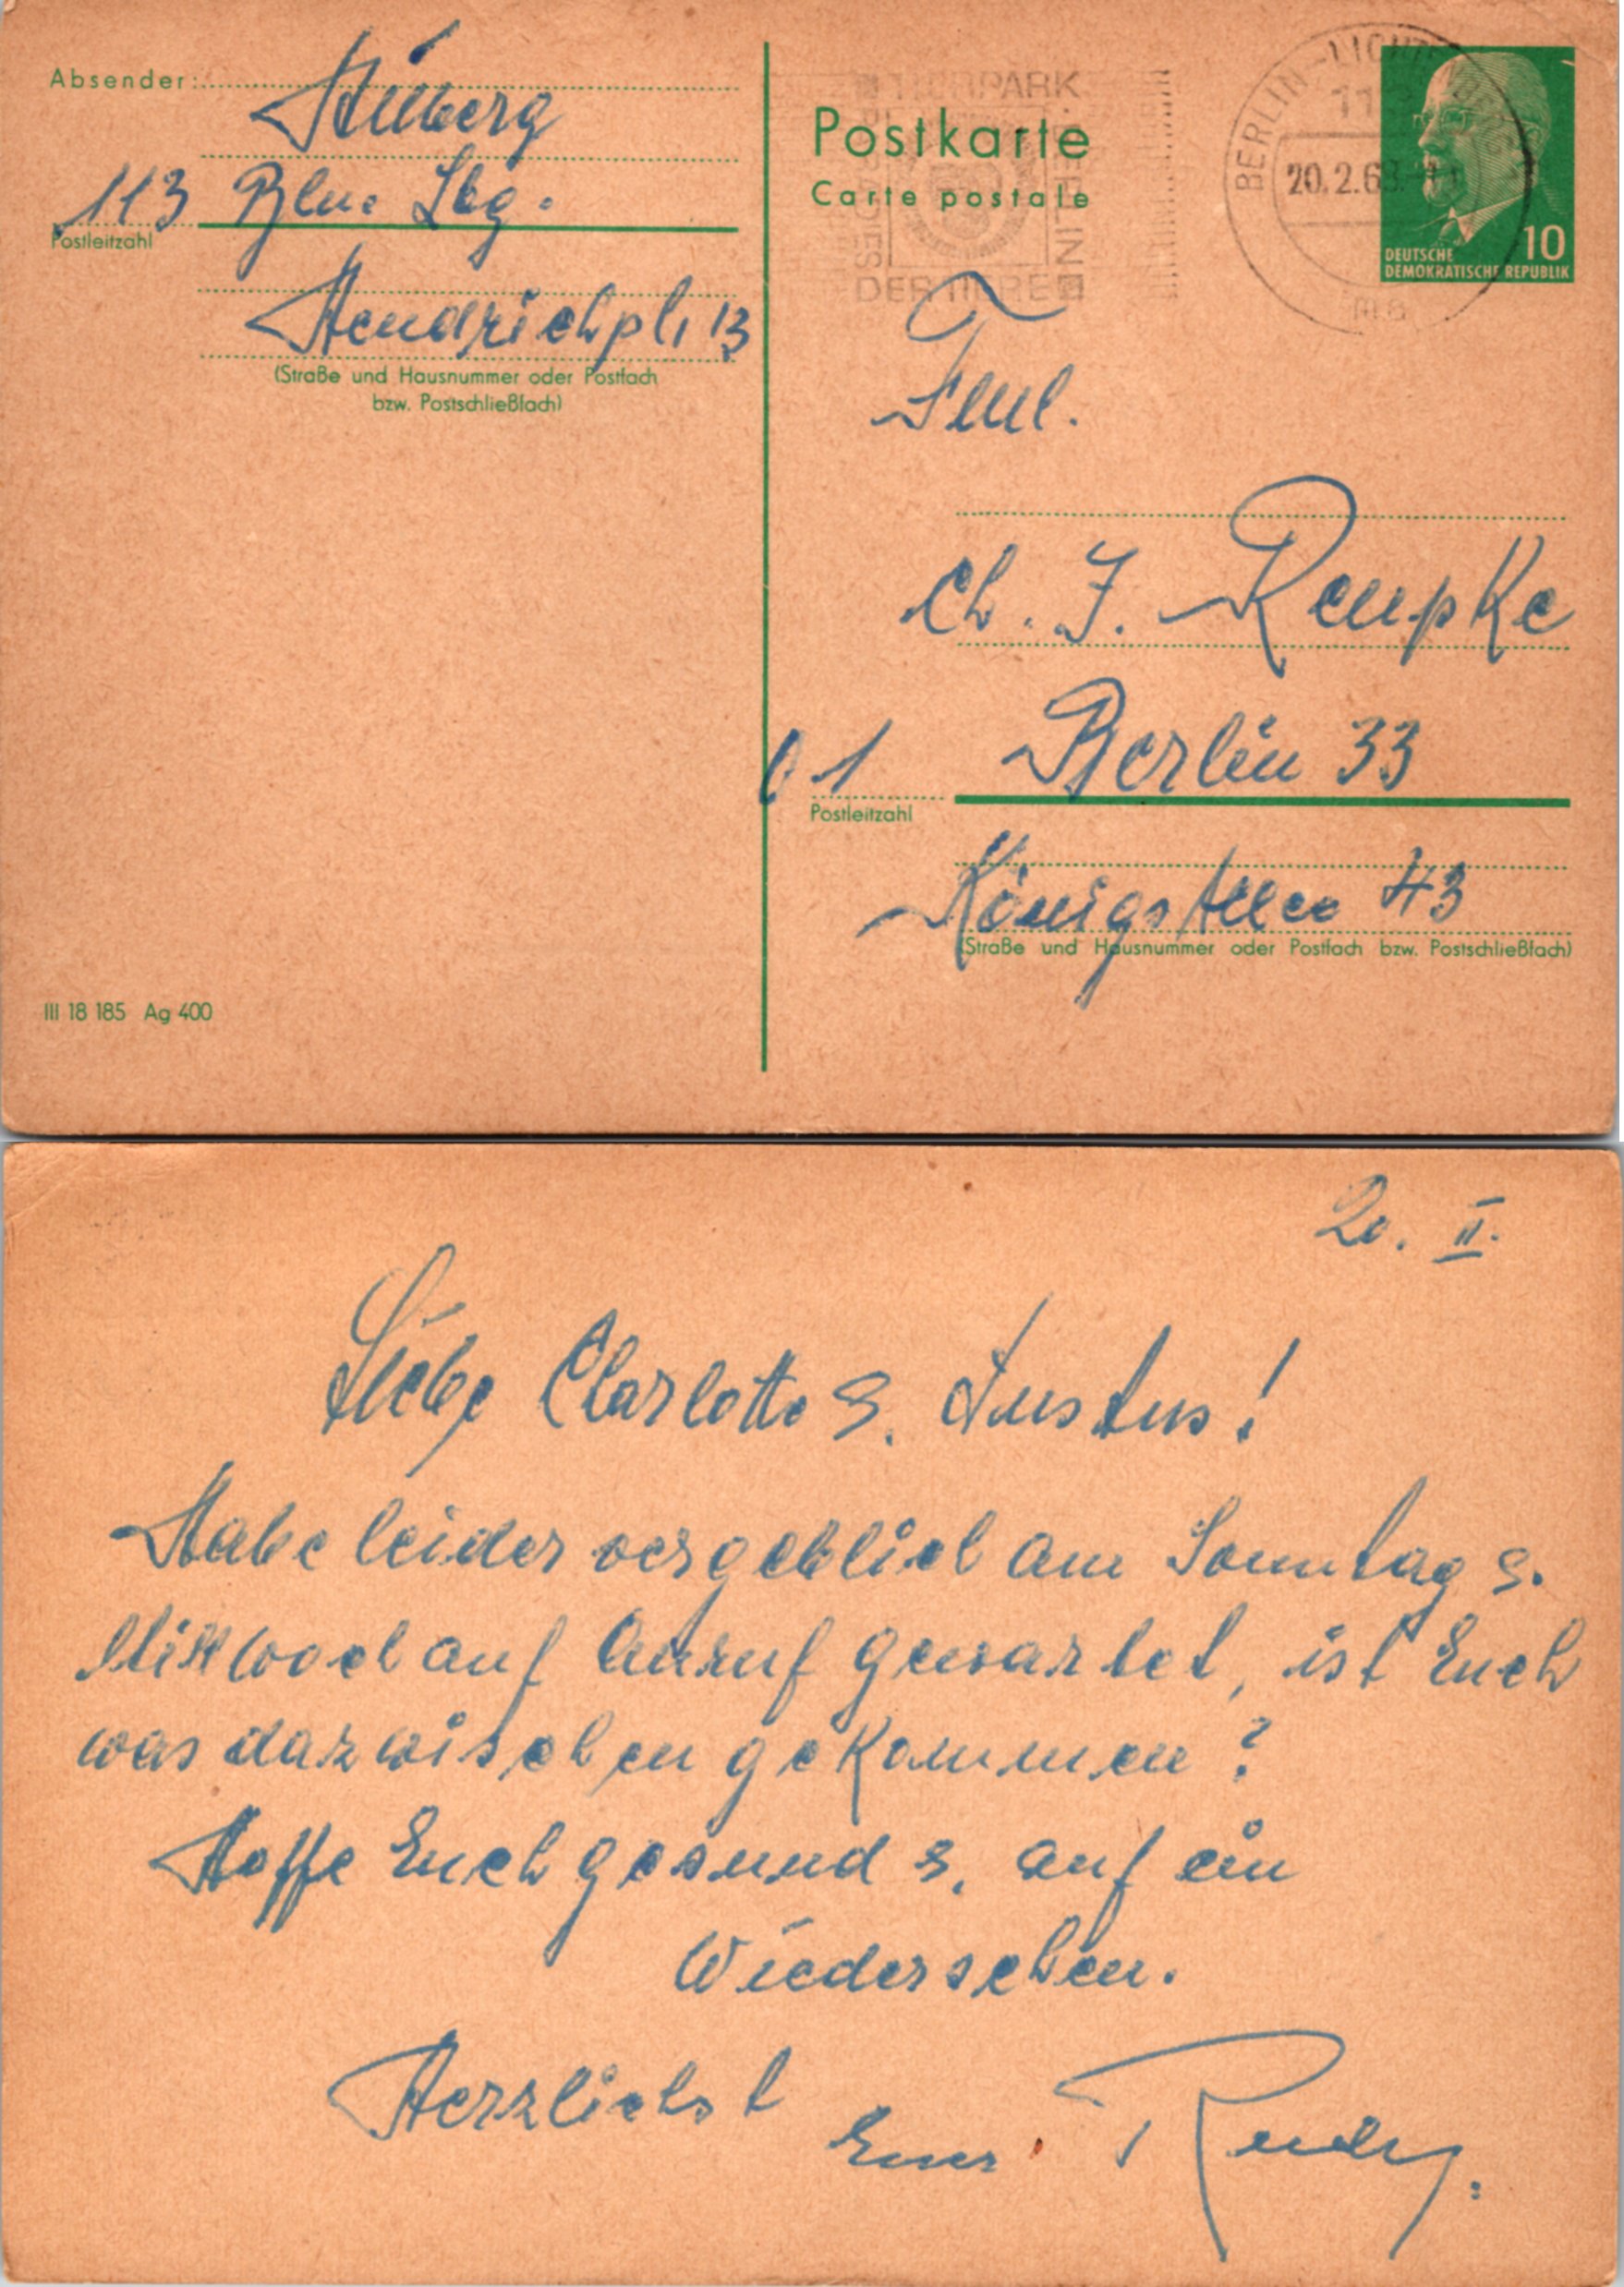 Absender:
113 Bln. Lbg.
Postleitzahl
Hendrichpl. 13
(Straße und Hausnummer oder Postfach
bzw. Postschließfach)
III 18 185 Ag 400
TIERPARK
BERLIN
PARADIES
DER TIERE
Postkarte
Carte postale
BERLIN-LICHTENBERG 1
113
20.2.68
10
DEUTSCHE
DEMOKRATISCHE REPUBLIK
Faml.
Ch. J. Rempke
1 Berlin 33
Postleitzahl
Königsallee 43
(Straße und Hausnummer oder Postfach bzw. Postschließfach)
20. II.
Liebe Charlotte u. Justus!
Habe leider vergeblich am Sonntag u.
Mittwoch auf Anruf gewartet, ist Euch
was dazwischen gekommen?
Hoffe Euch gesund u. auf ein
Wiedersehen.
Herzlichst
Euer Rudy.